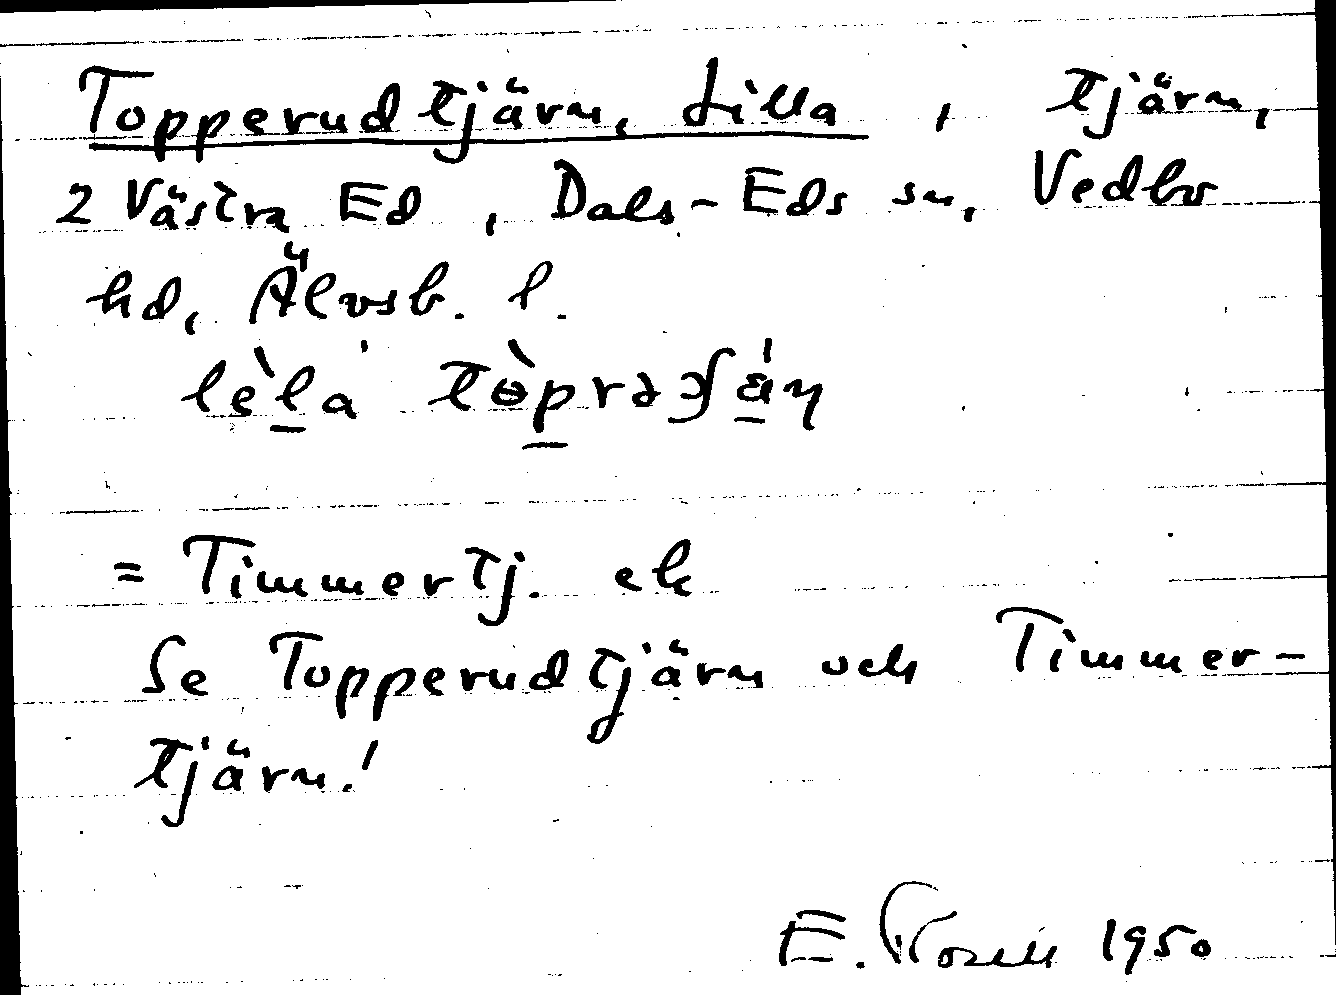 Topperudtjärn, Lilla , tjärn,
2 Västra Ed , Dals-Eds sn, Vedbo
hd, Älvsb. l.
= Timmertj. ek
Se Topperudtjärn och Timmer-
tjärn!
E. 1950